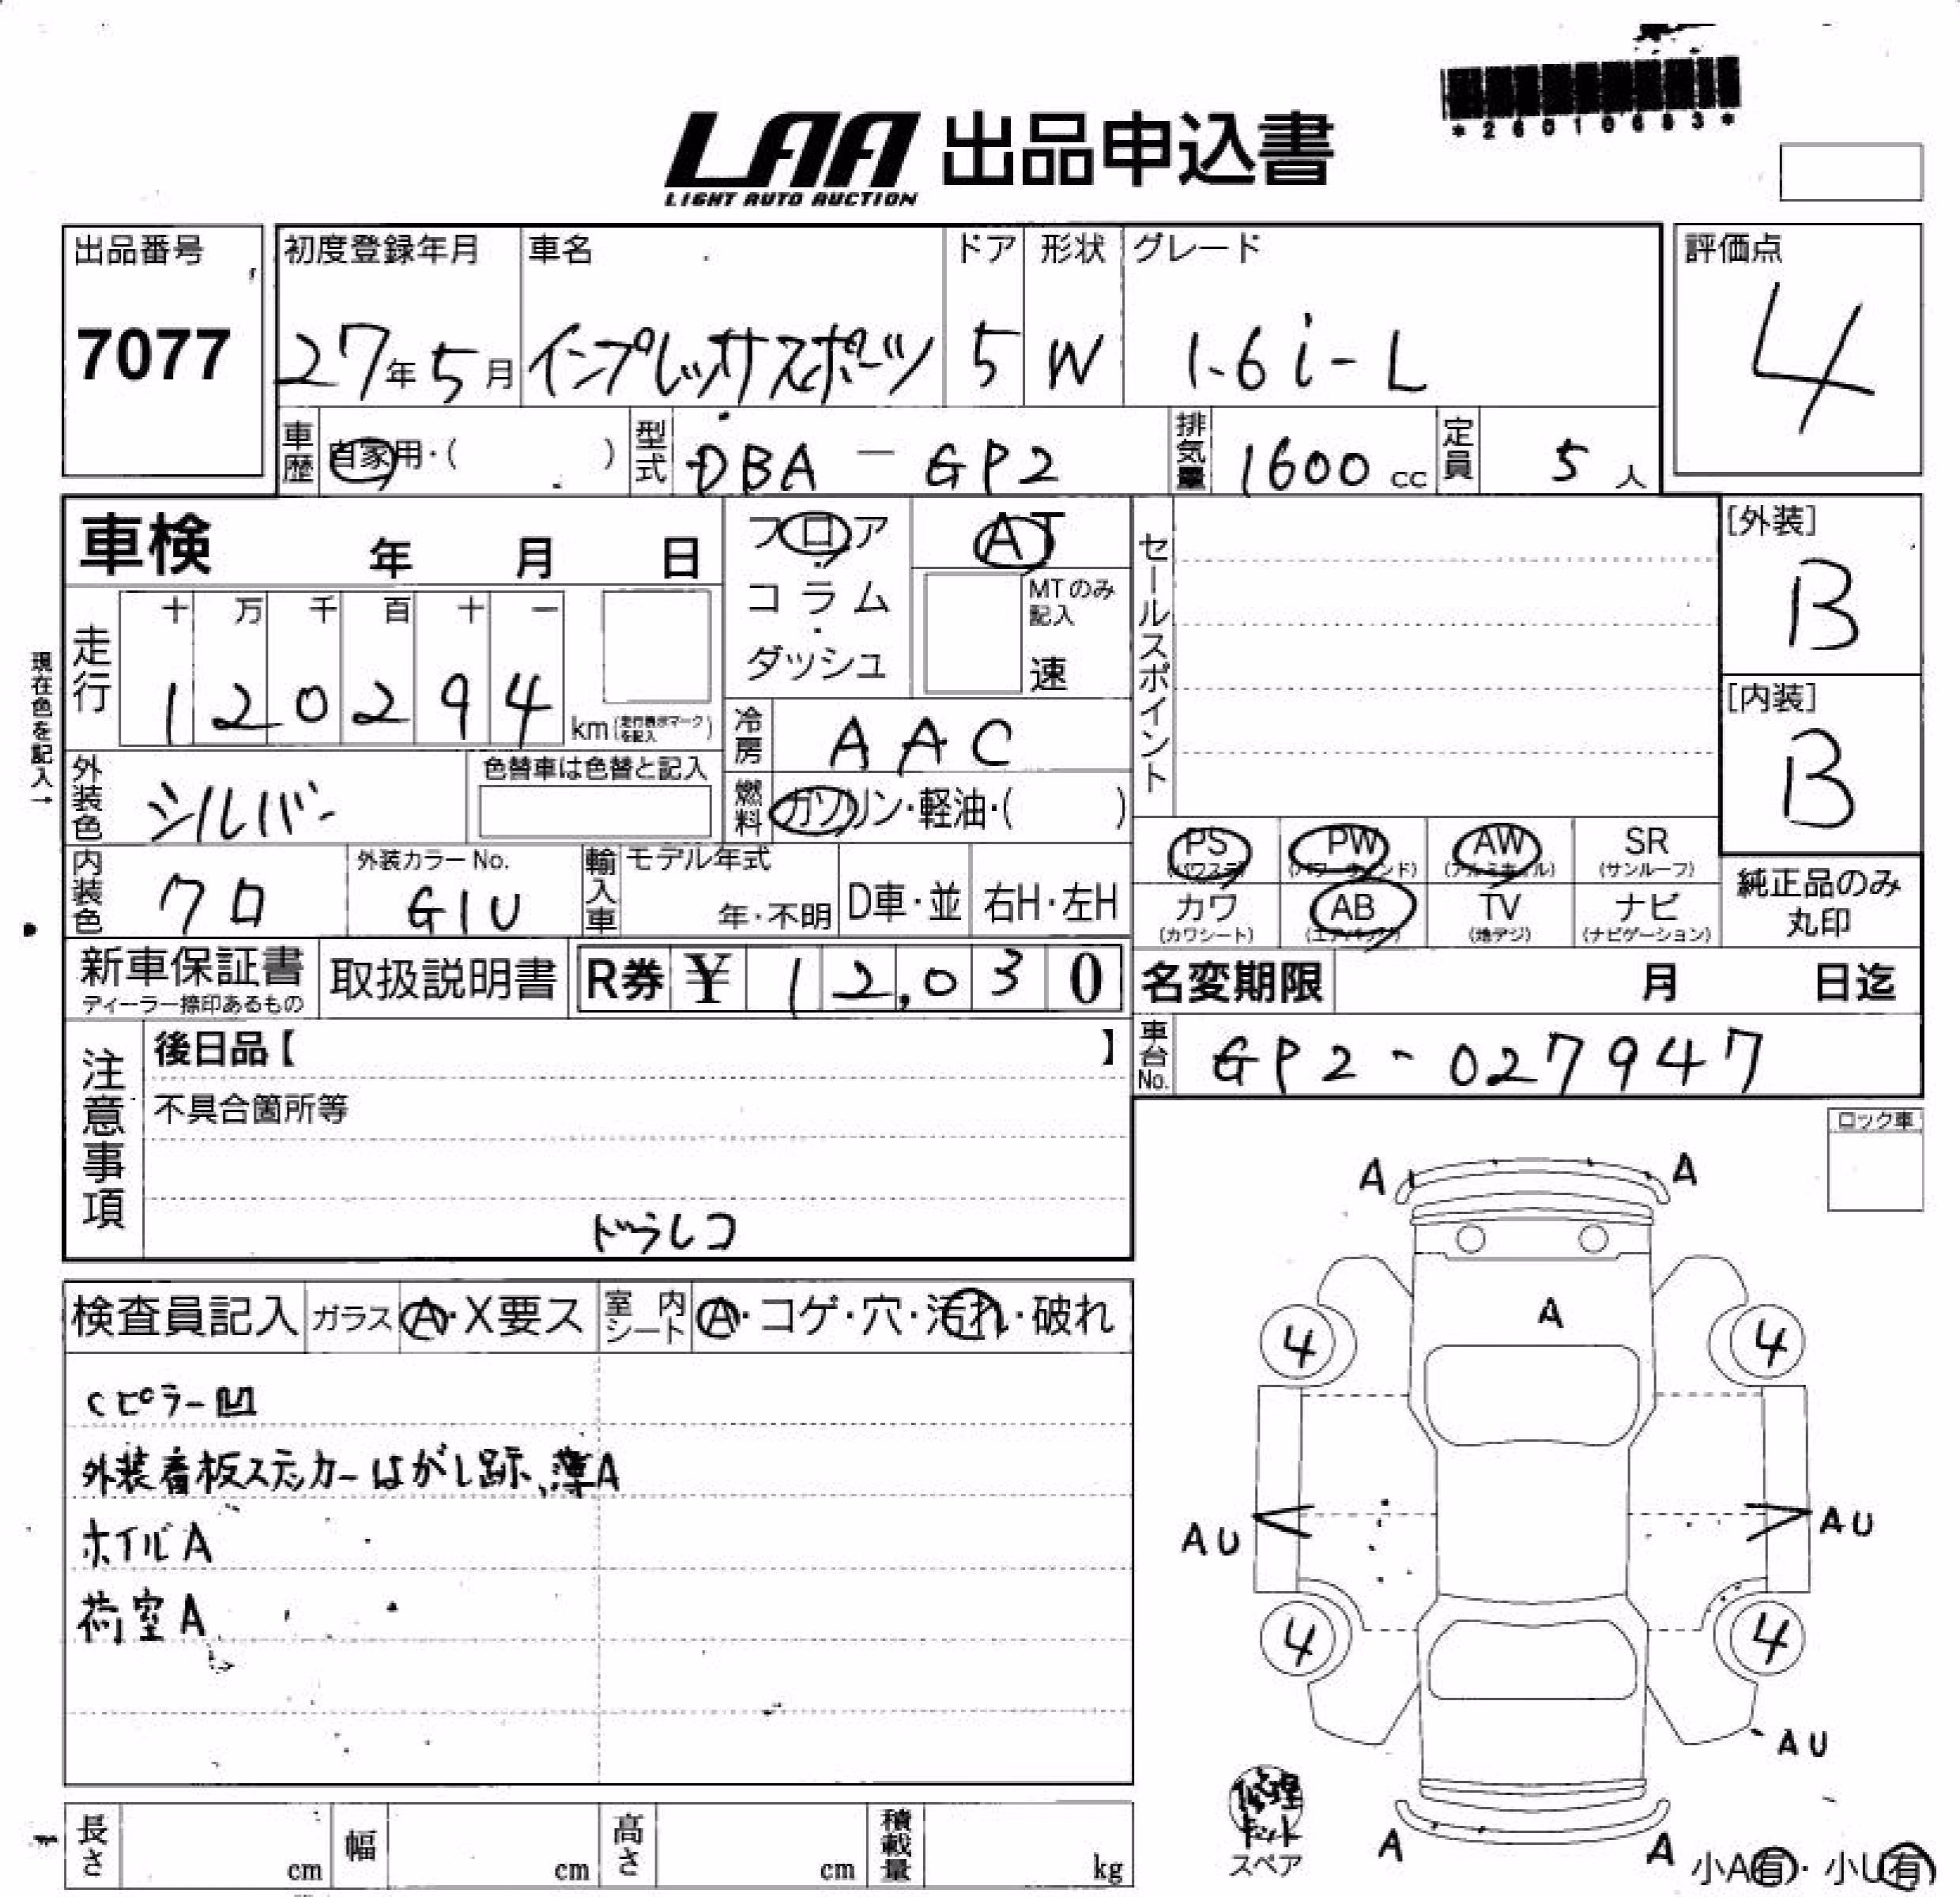 *26010683*
LAA 出品申込書
LIGHT AUTO AUCTION
出品番号 初度登録年月 車名 ドア 形状 グレード 評価点
7077 27年5月 インプレッサスポーツ 5 W 1.6i-L 4
車歴 自家用・( ) 型式 DBA-GP2 排気量 1600cc 定員 5人
車検 年 月 日 フロア AT セールスポイント [外装]
コラム MTのみ記入 B
ダッシュ 速
現在色を記入→
走行 十 万 千 百 十 一
120294 km(走行表示マークを記入) [内装]
冷房 AAC B
外装色 シルバー 色替車は色替と記入 燃料 ガソリン・軽油・( )
PS PW AW SR
(パワステ) (パワーウィンド) (アルミホイル) (サンルーフ)
内装色 クロ 外装カラーNo. G1U 輸入車 モデル年式 年・不明 D車・並 右H・左H
カワ AB TV ナビ 純正品のみ
(カワシート) (エアバッグ) (地デジ) (ナビゲーション) 丸印
新車保証書 取扱説明書 R券 ¥ 12,030 名変期限 月 日迄
ディーラー捺印あるもの
注意事項 後日品【 】 車台No. GP2-027947
不具合箇所等
ドラレコ
ロック車
検査員記入 ガラス A・X要ス 室内シート A・コゲ・穴・汚れ・破れ
Cピラー凹
外装看板ステッカーはがし跡、薄A
ホイルA
荷室A
A A
A
4 4
AU AU
4 4
AU
修理キット
スペア
A A
小A有・小U有
長さ cm 幅 cm 高さ cm 積載量 kg